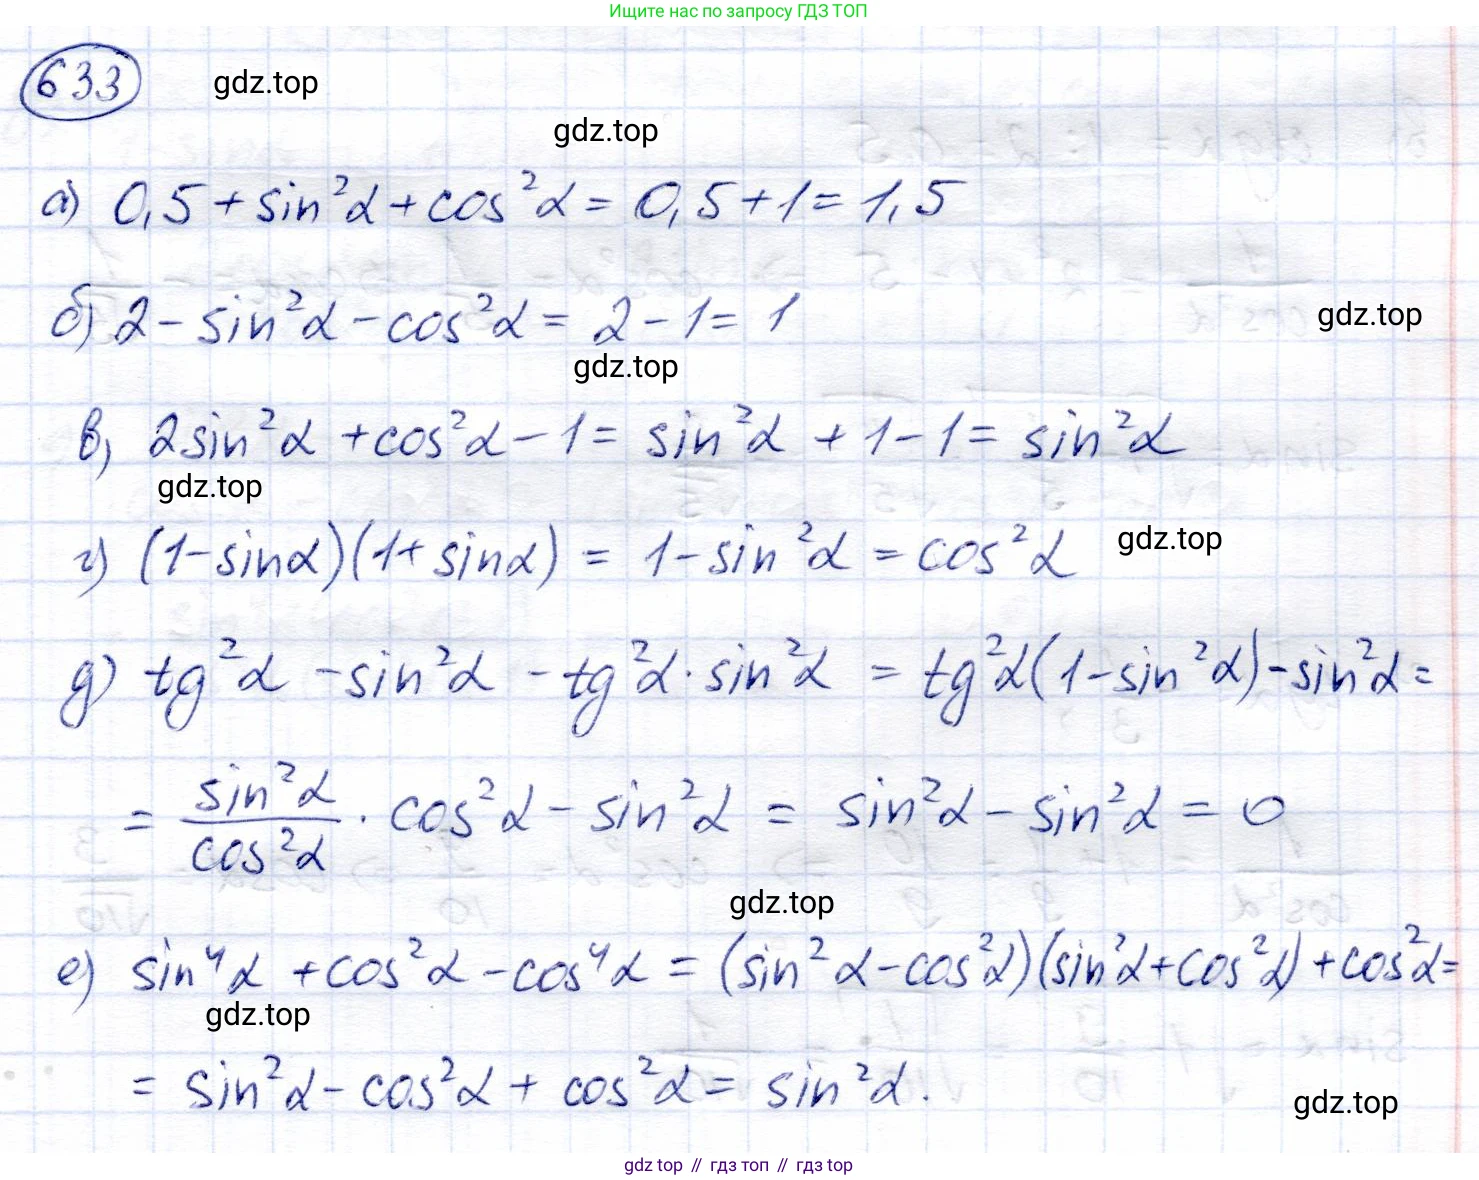 Ищите нас по запросу ГДЗ ТОП
633
gdz.top
gdz.top
а) 0,5 + sin²α + cos²α = 0,5 + 1 = 1,5
б) 2 - sin²α - cos²α = 2 - 1 = 1
gdz.top
gdz.top
в) 2sin²α + cos²α - 1 = sin²α + 1 - 1 = sin²α
gdz.top
г) (1 - sinα)(1 + sinα) = 1 - sin²α = cos²α
gdz.top
д) tg²α - sin²α - tg²α · sin²α = tg²α(1 - sin²α) - sin²α =
= sin²α/cos²α · cos²α - sin²α = sin²α - sin²α = 0
gdz.top
е) sin⁴α + cos²α - cos⁴α = (sin²α - cos²α)(sin²α + cos²α) + cos²α =
gdz.top
= sin²α - cos²α + cos²α = sin²α.
gdz.top
gdz top // гдз топ // гдз top